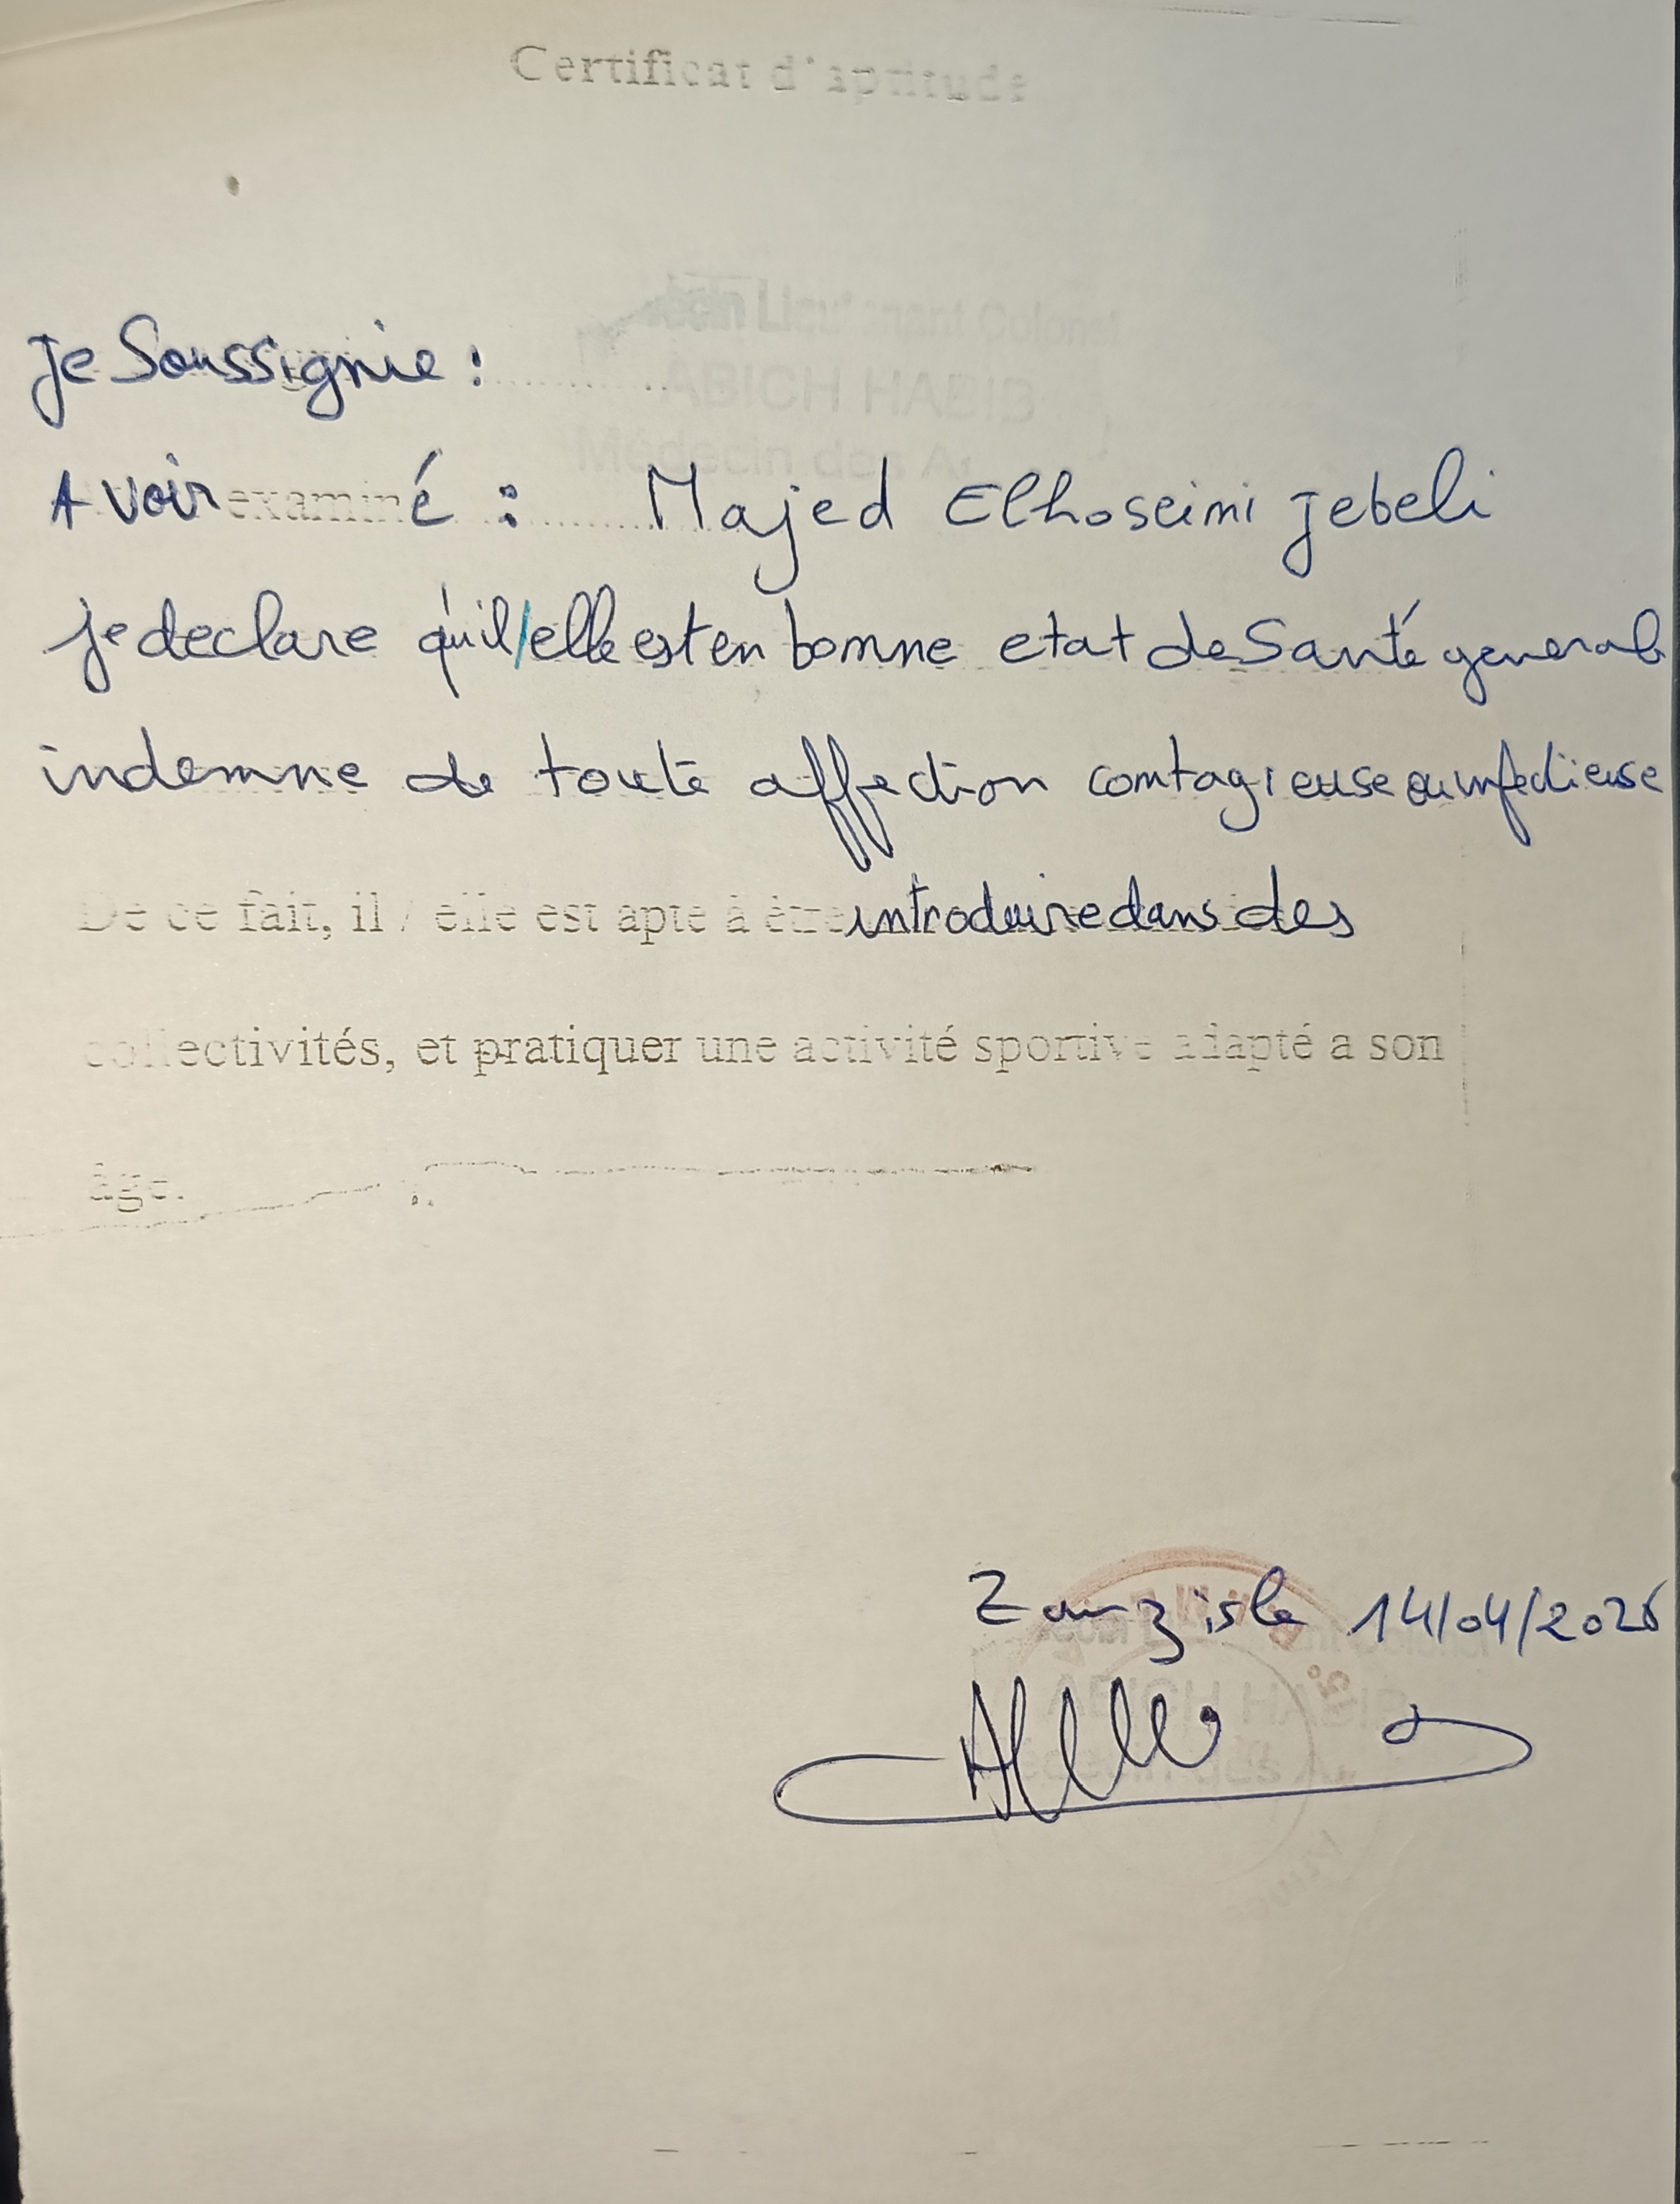 Certificat d'aptitude
Lieutenant Colonel
ABICH HABIB
Je Soussignie :
Médecin des
Avoir examiné : Majed Elhoseimi Jebeli
je declare qu'il/elle est en bomne etat de Santé general
indemne de toute affection comtagieuse ou infectieuse
De ce fait, il / elle est apte à être introduire dans des
collectivités, et pratiquer une activité sportive adapté a son
âge.
Zarzis le 14/04/2026
ABICH HABIB